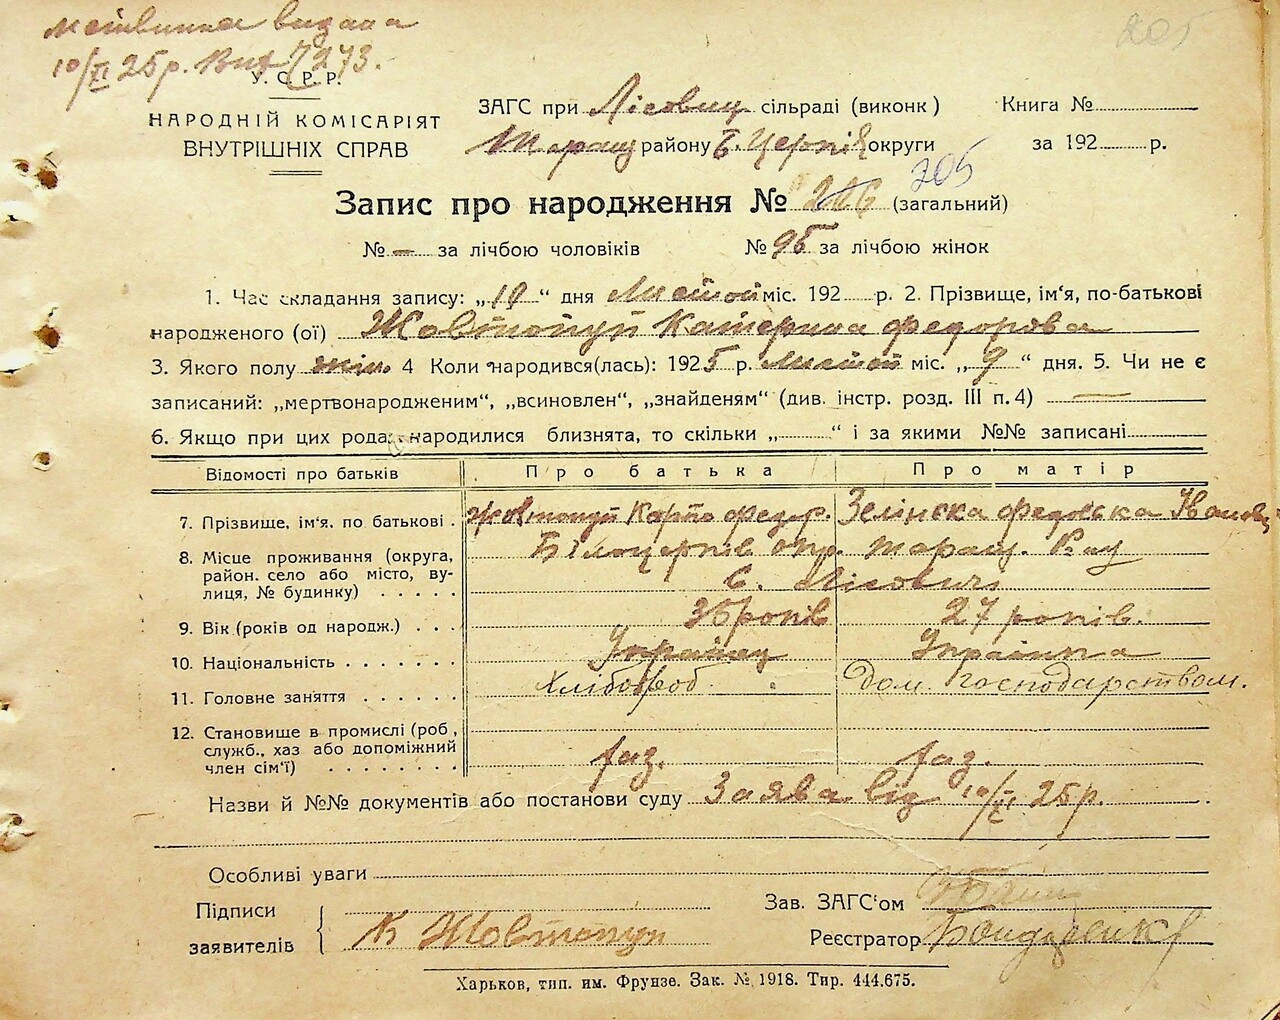 205
10/XI 25р. Вит 7273.
У.С.Р.Р.
НАРОДНІЙ КОМІСАРІЯТ
ВНУТРІШНІХ СПРАВ
ЗАГС при Лісович сільраді (виконк)
Таращ району Б. Церків округи
Книга №
за 192 р.
205
Запис про народження № 206 (загальний)
№ — за лічбою чоловіків № 95 за лічбою жінок
1. Час складання запису: „10“ дня Листоп міс. 192 р. 2. Прізвище, ім'я, по-батькові
народженого (ої) Жовтопуп Катерина Федорова
3. Якого полу жін. 4 Коли народився(лась): 1925 р. Листоп міс. „9“ дня. 5. Чи не є
записаний: „мертвонародженим“, „всиновлен“, „знайденям“ (див. інстр. розд. III п. 4) —
6. Якщо при цих родах народилися близнята, то скільки „ “ і за якими №№ записані
Відомості про батьків Про батька Про матір
7. Прізвище, ім'я, по батькові . Жовтопуп Карпо Федор. Зелінска Федоська Івановн
8. Місце проживання (округа, район. село або місто, вулиця, № будинку) . . . . . Білоцерків окр. Таращ. Рай
с. Лісовичі
9. Вік (років од народж.) . . . 35 років 27 років.
10. Національність . . . . . . . Українец Українка
11. Головне заняття . . . . . . Хлібороб Дом. господарством.
12. Становище в промислі (роб., служб., хаз або допоміжний член сім'ї) . . . . . . . . хаз. хаз.
Назви й №№ документів або постанови суду Заява від 10/XI 25р.
Особливі уваги
Підписи
заявителів
К Жовтопуп
Зав. ЗАГС'ом
Реєстратор Бондаренко
Харьков, тип. им. Фрунзе. Зак. № 1918. Тир. 444.675.